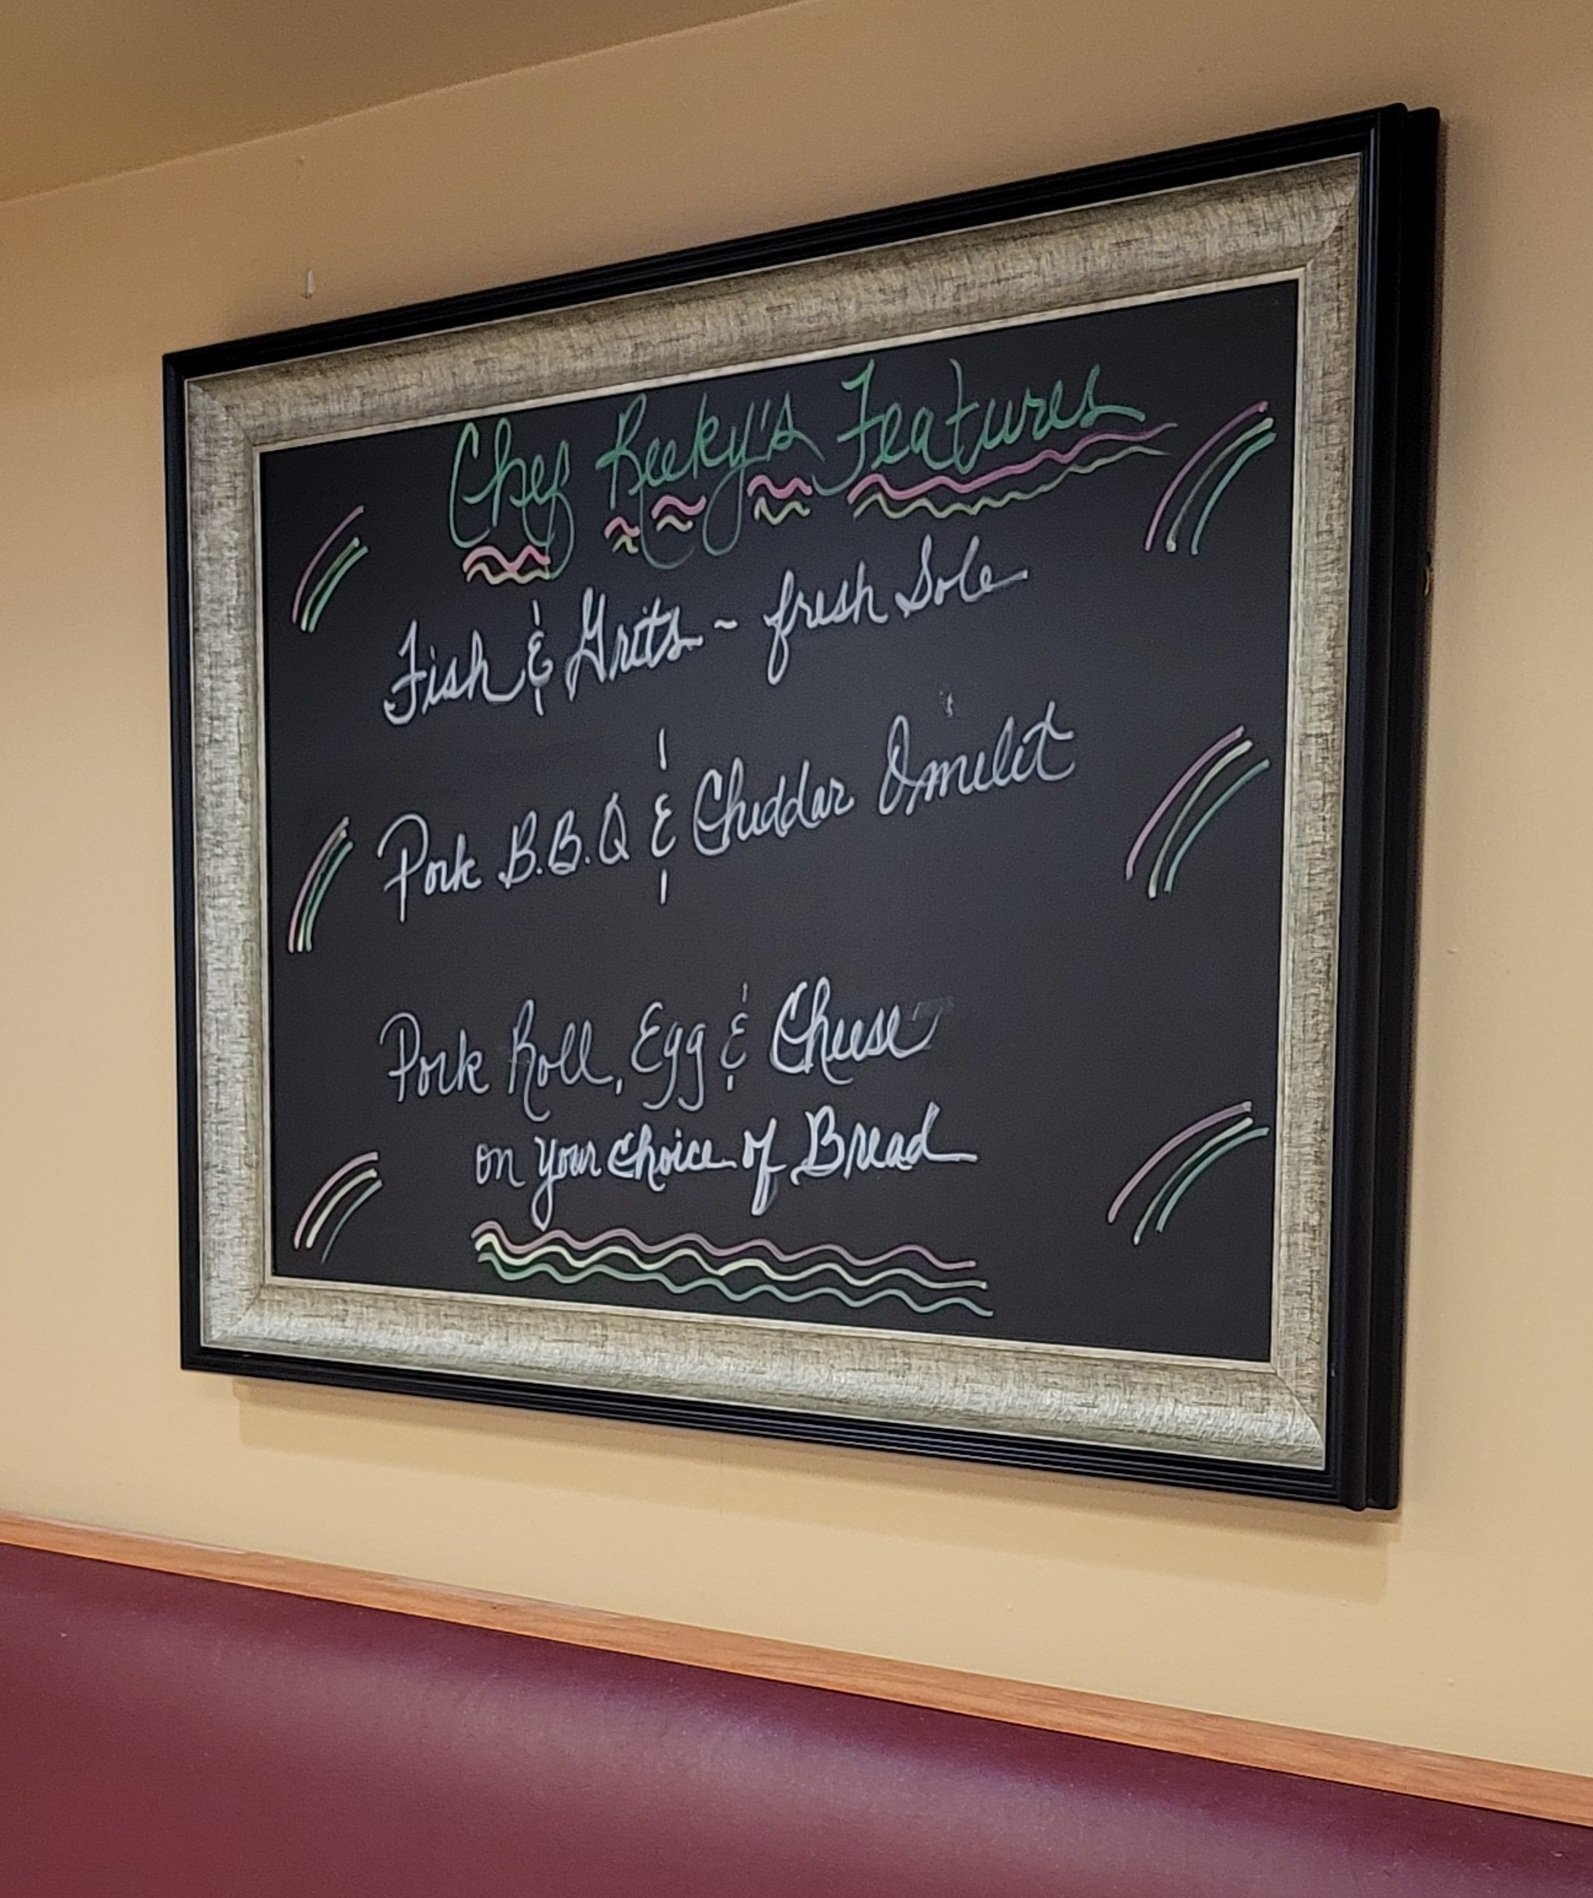 Chef Reeky's Features
Fish & Grits ~ fresh Sole
Pork B.B.Q & Cheddar Omelet
Pork Roll, Egg & Cheese
on your choice of Bread